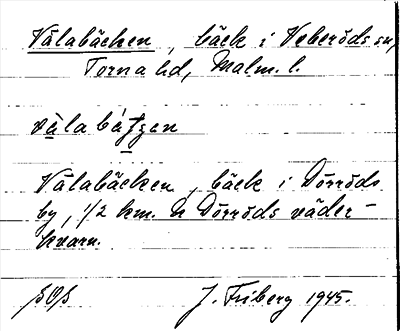 Válabäcken, bäck i Veberöds sn,
Torna hd, Malm. l.
Válabäcken, bäck i Dörröds
by, 1/2 km. N Dörröds väder-
kvarn.
J. Friberg 1945.